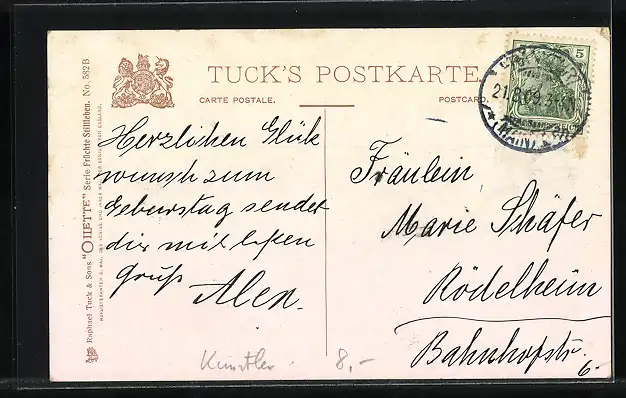 TUCK'S POSTKARTE.
CARTE POSTALE.
POSTCARD.
Raphael Tuck & Sons "OILETTE" Serie Früchte Stillleben. No. 582B
5
21.8.09.
Herzlichen Glück
wunsch zum
Geburstag sendet
dir mit besten
Gruß
Alex.
Fräulein,
Marie Schäfer
Rödelheim
Bahnhofstr. 6.
Künstler.
8,-